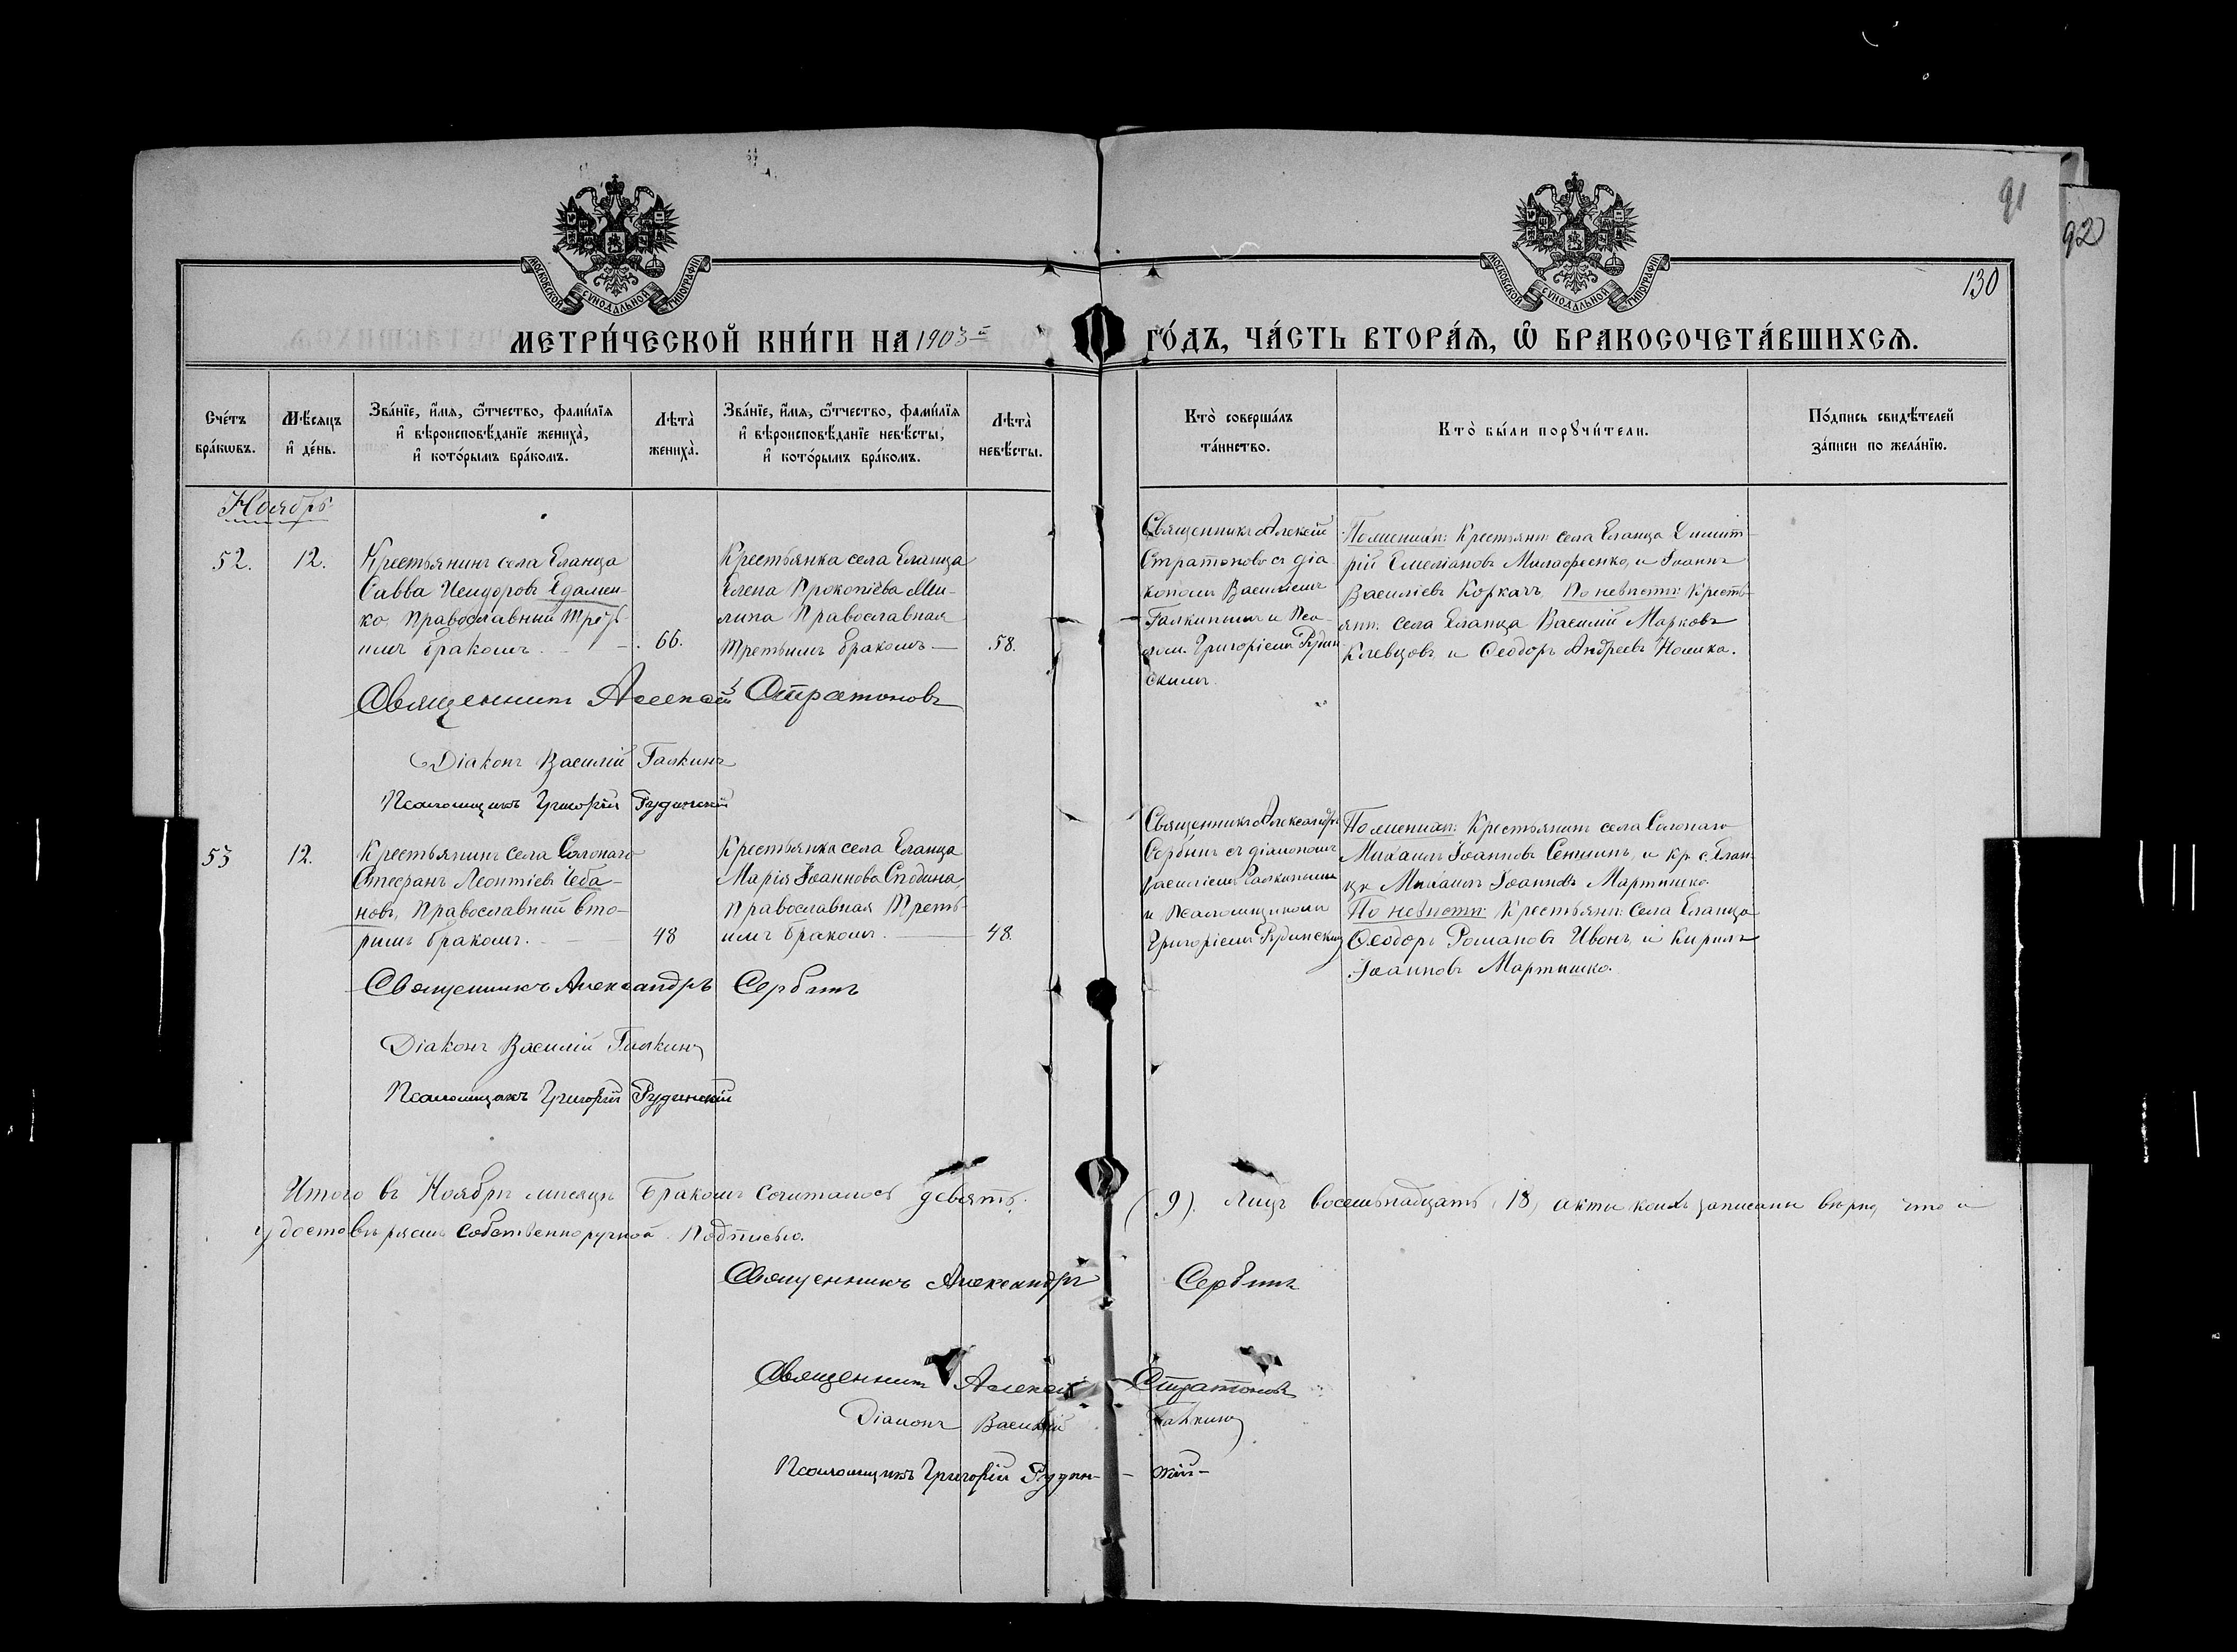 91
92
130
МОСКОВСКОЙ СѴНОДАЛЬНОЙ ТИПОГРАФІИ
МОСКОВСКОЙ СѴНОДАЛЬНОЙ ТИПОГРАФІИ
МЕТРИ́ЧЕСКОЙ КНИ́ГИ НА 1903-й ГО́ДЪ, ЧА́СТЬ ВТОРА́Ѧ, Ѡ҆ БРАКОСОЧЕТА́ВШИХСѦ.
Сче́тъ бра́кѡвъ.
Мѣ́сѧцъ и҆ де́нь.
Зва́нїе, и҆́мѧ, ѻ҆́тчество, фами́лїѧ
и҆ вѣроисповѣ́данїе жениха̀,
и҆ кото́рымъ бра́комъ.
Лѣта̀ жениха̀.
Зва́нїе, и҆́мѧ, ѻ҆́тчество, фами́лїѧ
и҆ вѣроисповѣ́данїе невѣ́сты,
и҆ кото́рымъ бра́комъ.
Лѣта̀ невѣ́сты.
Кто̀ соверша́лъ
та́инство.
Кто̀ бы́ли порꙋчи́тели.
По́дпись свидѣ́телей
за́писи по жела́нїю.
Ноябрь
52. 12.
Крестьянинъ села Еланца
Савва Исидоровъ Едамен-
ко, Православный треть-
имъ бракомъ. 66.
Крестьянка села Еланца
Елена Прокопіева Ми-
лина Православная
третьимъ бракомъ 58.
Священникъ Алексій
Стратоновъ съ діа-
кономъ Василіемъ
Галкинымъ и Пса-
лом. Григоріемъ Рудин
скимъ
По женихѣ: Крестьян: села Еланца Димит-
рій Емеліановъ и Іоаннъ
Василіевъ Коркачъ, По невѣстѣ: Кресть-
ян: села Еланца Василій Марковъ
Клевцовъ и Ѳеодоръ Андреевъ Номика.
Священникъ Алексій Стратоновъ
Діаконъ Василій Галкинъ
Псаломщикъ Григорій Рудинскій
53 12.
Крестьянинъ села Солонаго
Стефанъ Леонтіевъ Чеба-
новъ, Православный вто-
рымъ бракомъ. 48
Крестьянка села Еланца
Марія Іоаннова Сподина,
Православная треть-
имъ бракомъ. 48.
Священникъ Александръ
Сербинъ съ діакономъ
Василіемъ Галкинымъ
и Псаломщикомъ
Григоріемъ Рудинскимъ
По женихѣ: Крестьянинъ села Солонаго
Михаилъ Іоанновъ и Кр. с. Елан-
ца Михаилъ Іоанновъ Мартишко.
По невѣстѣ: Крестьян: села Еланца
Ѳеодоръ Романовъ Ивонъ, и Кириллъ
Іоанновъ Мартишко.
Священникъ Александръ Сербинъ
Діаконъ Василій Галкинъ
Псаломщикъ Григорій Рудинскій
Итого въ Ноябрѣ мѣсяцѣ Бракомъ сочеталось девять. (9). Лицъ восемьнадцать (18) акты коихъ записаны вѣрно, что и
удостовѣряемъ собственноручной подписью.
Священникъ Александръ Сербинъ
Священникъ Алексій Стратоновъ
Діаконъ Василій Галкинъ
Псаломщикъ Григорій Рудин- -скій-